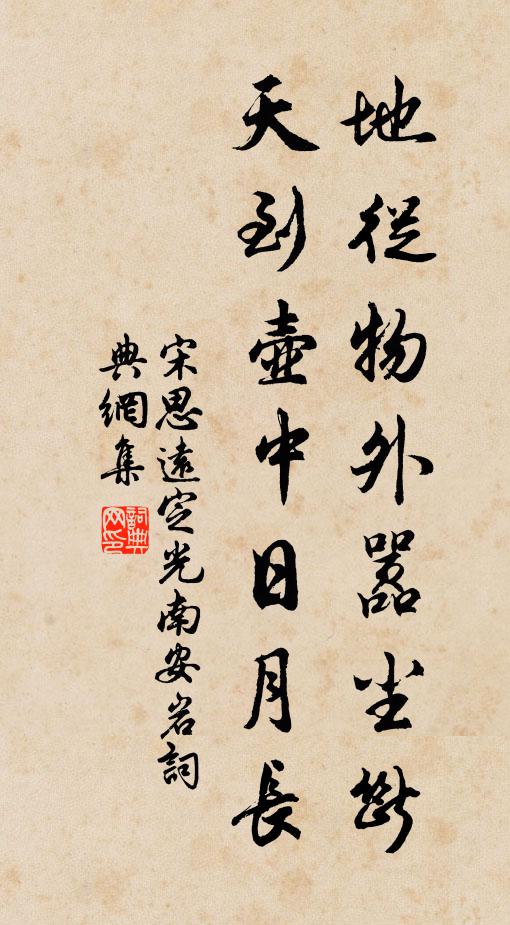 地從物外囂塵斷
天到壺中日月長
宋思遠定光南安岩詞
典網集
詞典
网印